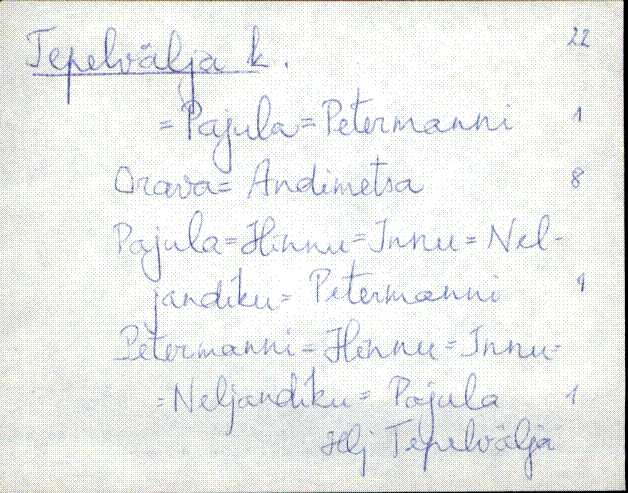 Tepelvälja k. 22
= Pajula = Petermanni 1
Orava = Andimetsa 8
Pajula = Hinnu = Innu = Nel-
jandiku = Petermanni 1
Petermanni = Hinnu = Innu =
= Neljandiku = Pajula 1
Hlj Tepelvälja